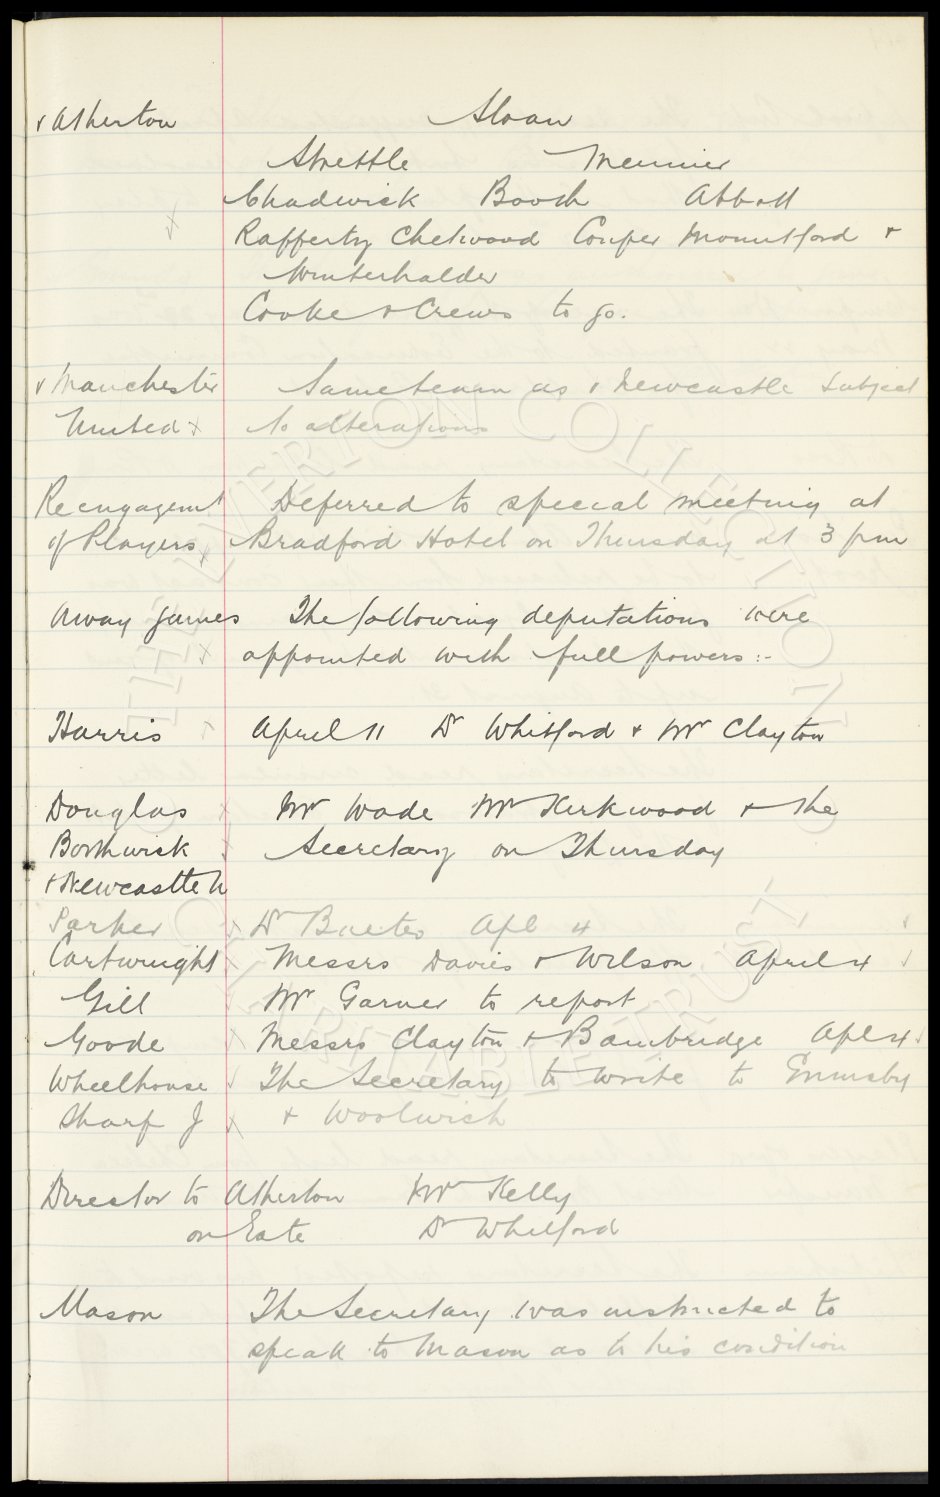 v Atherton Sloan
Strettle Meunier
Chadwick Booth Abbott
Rafferty Chetwood Couper Mountford +
Winterhalder
Cooke & Crews to go.
v Manchester Same team as v Newcastle subject
United to alterations
Reengagemt Deferred to special meeting at
of Players Bradford Hotel on Thursday at 3 pm
Away games The following deputations were
appointed with full powers:-
Harris April 11 Dr Whitford + Mr Clayton
Douglas Mr Wade Mr Kirkwood + the
Borthwick Secretary on Thursday
v Newcastle U
Parker Dr Baxter Apl 4
Cartwright Messrs Davies + Wilson April 4
Gill Mr Garner to report
Goode Messrs Clayton + Bainbridge Apl 4
Wheelhouse The Secretary to write to Grimsby
Sharp J + Woolwich
Director to Atherton Mr Kelly
on Gate Dr Whitford
Mason The Secretary was instructed to
speak to Mason as to his condition
THE EVERTON COLLECTION
CHARITABLE TRUST